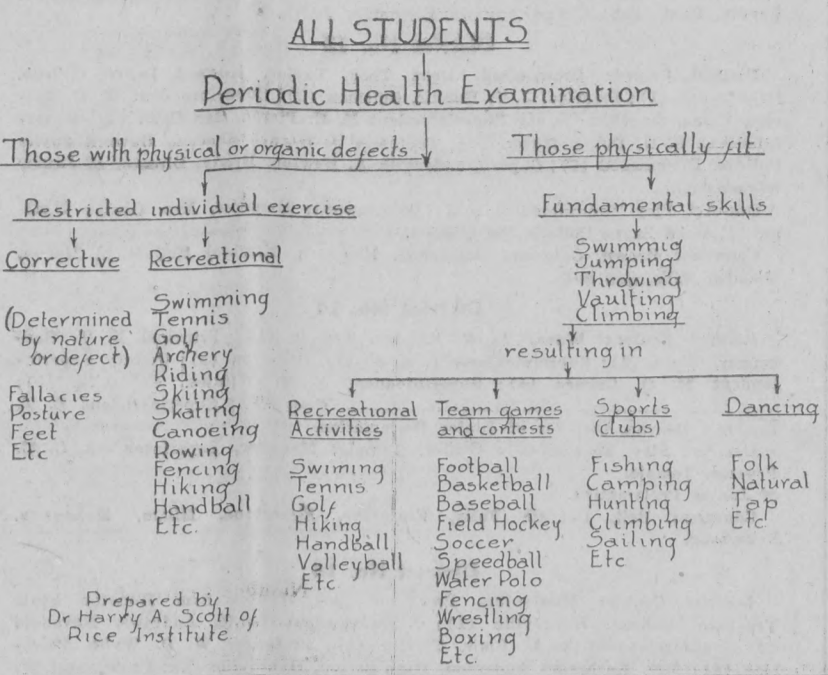 ALL STUDENTS
Periodic Health Examination
Those with physical or organic defects
Those physically fit
Restricted individual exercise
Fundamental skills
Corrective
Recreational
Swimmig
Jumping
Throwing
Vaulting
Climbing
(Determined
by nature
or defect)
Fallacies
Posture
Feet
Etc
Swimming
Tennis
Golf
Archery
Riding
Skiing
Skating
Canoeing
Rowing
Fencing
Hiking
Handball
Etc.
resulting in
Recreational
Activities
Swiming
Tennis
Golf
Hiking
Handball
Volleyball
Etc
Team games
and contests
Football
Basketball
Baseball
Field Hockey
Soccer
Speedball
Water Polo
Fencing
Wrestling
Boxing
Etc.
Sports
(clubs)
Fishing
Camping
Hunting
Climbing
Sailing
Etc
Dancing
Folk
Natural
Tap
Etc
Prepared by
Dr Harry A. Scott of
Rice Institute